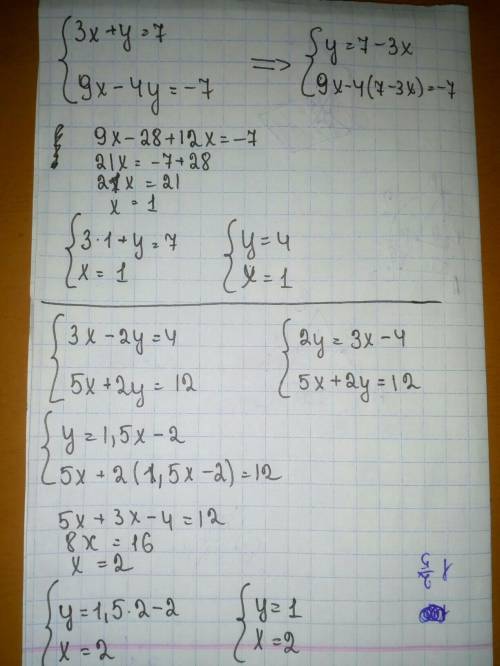 3x+y=7
9x-4y=-7
=>
y=7-3x
9x-4(7-3x)=-7
9x-28+12x=-7
21x=-7+28
21x=21
x=1
3·1+y=7
x=1
y=4
x=1
3x-2y=4
5x+2y=12
2y=3x-4
5x+2y=12
y=1,5x-2
5x+2(1,5x-2)=12
5x+3x-4=12
8x=16
x=2
y=1,5·2-2
x=2
y=1
x=2